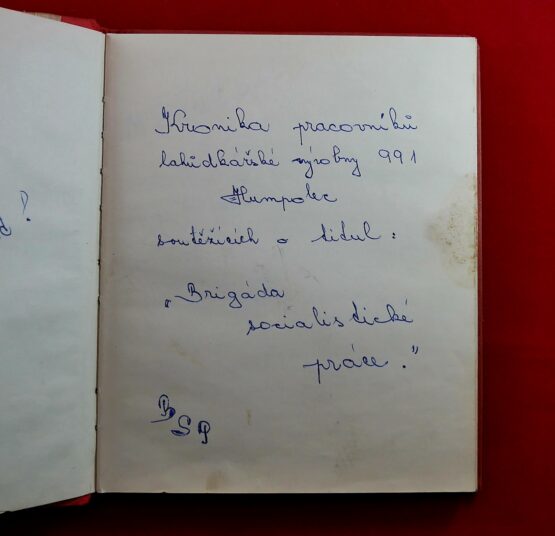 !
Kronika pracovníků
lahůdkářské výrobny 991
Humpolec
soutěžících o titul :
„Brigáda
socialistické
práce."
B
S P